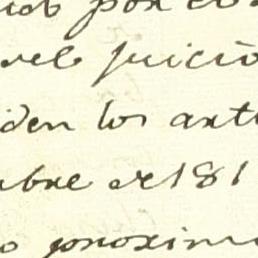 por el
el juicio
iden los art
bre de 181
o proxim